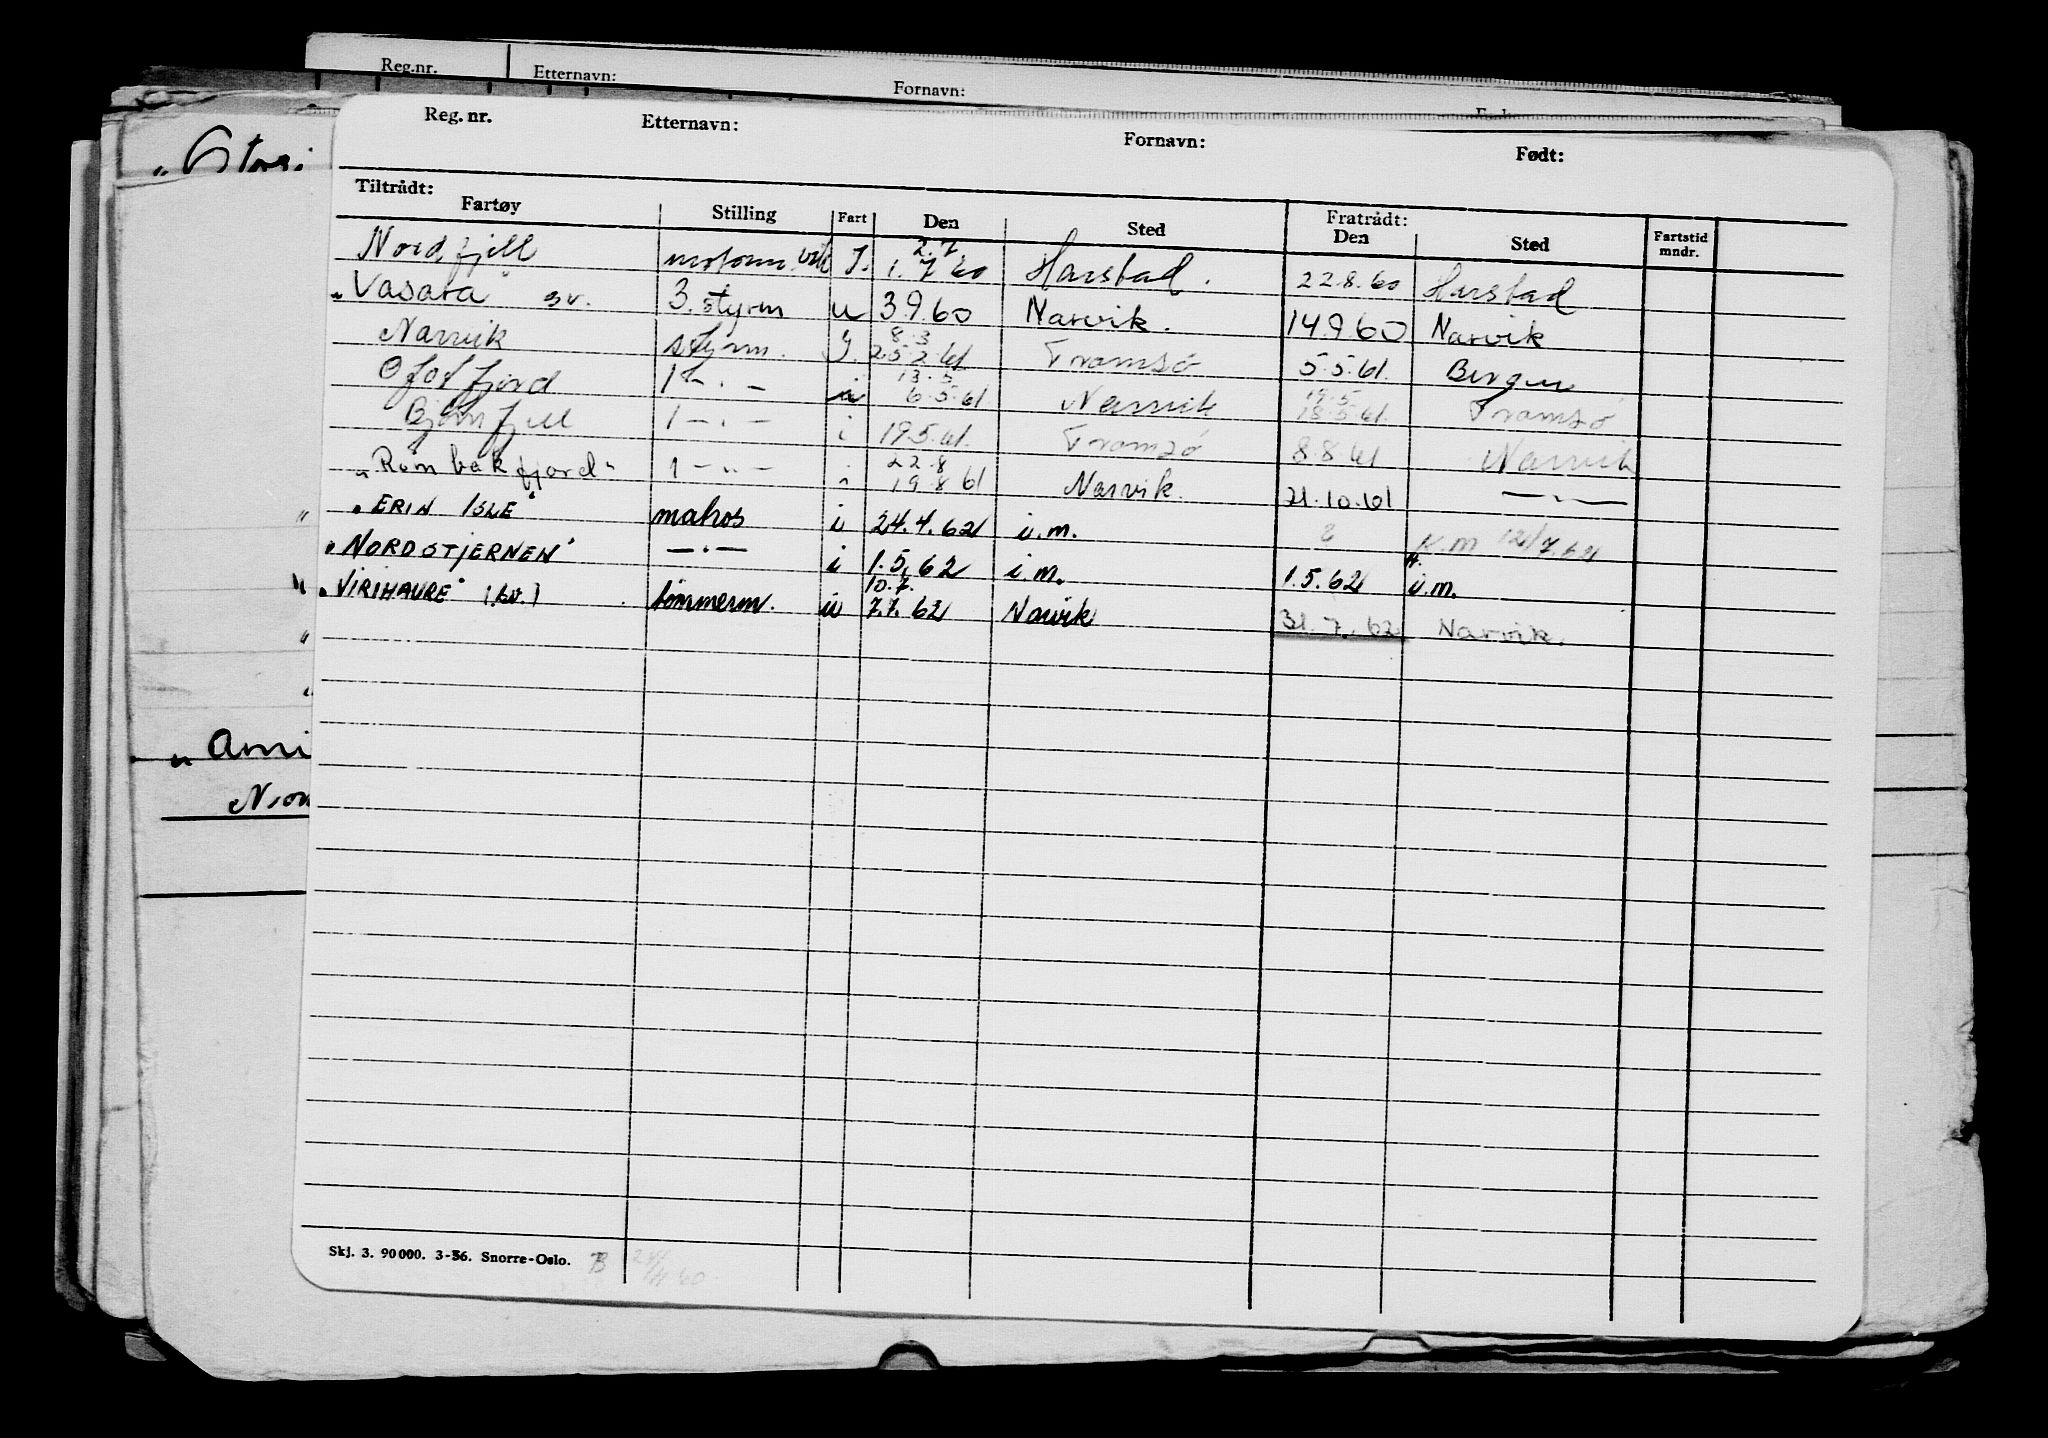 Reg.nr. Etternavn: Fornavn:
Reg. nr. Etternavn: Fornavn: Født:
Tiltrådt: Fratrådt:
Fartøy Stilling Fart Den Sted Den Sted Fartstid mndr.
2.7
Nordfjell J. 1.7 60 Harstad. 22.8.60 Harstad
"Vasara" sv. 3. styrm u 3.9.60 Narvik. 14.9.60 Narvik
8.3
Narvik styrm. J. 25.2.61 Tromsø 5.5.61. Bergen
13.5 19.5
Ofotfjord 1 - " - i 6.5.61 Narvik 18.5.61. Tromsø
Bjørnfjell 1 - " - i 19.5.61. Tromsø 8.8.61 Narvik
22.8
"Rombakfjord" 1 - " - i 19.8.61 Narvik. 21.10.61 - " -
"ERIN ISLE" matros u 24.4.62 u.m. 12/7.62
"NORDSTJERNEN" - " - i 1.5.62 i.m. 1.5.62 u.m.
10.7.
"VIRIHAURE" (sv.) tømmerm. u 7.7.62 Narvik 31.7.62 Narvik.
Skj. 3. 90 000. 3-56. Snorre-Oslo.